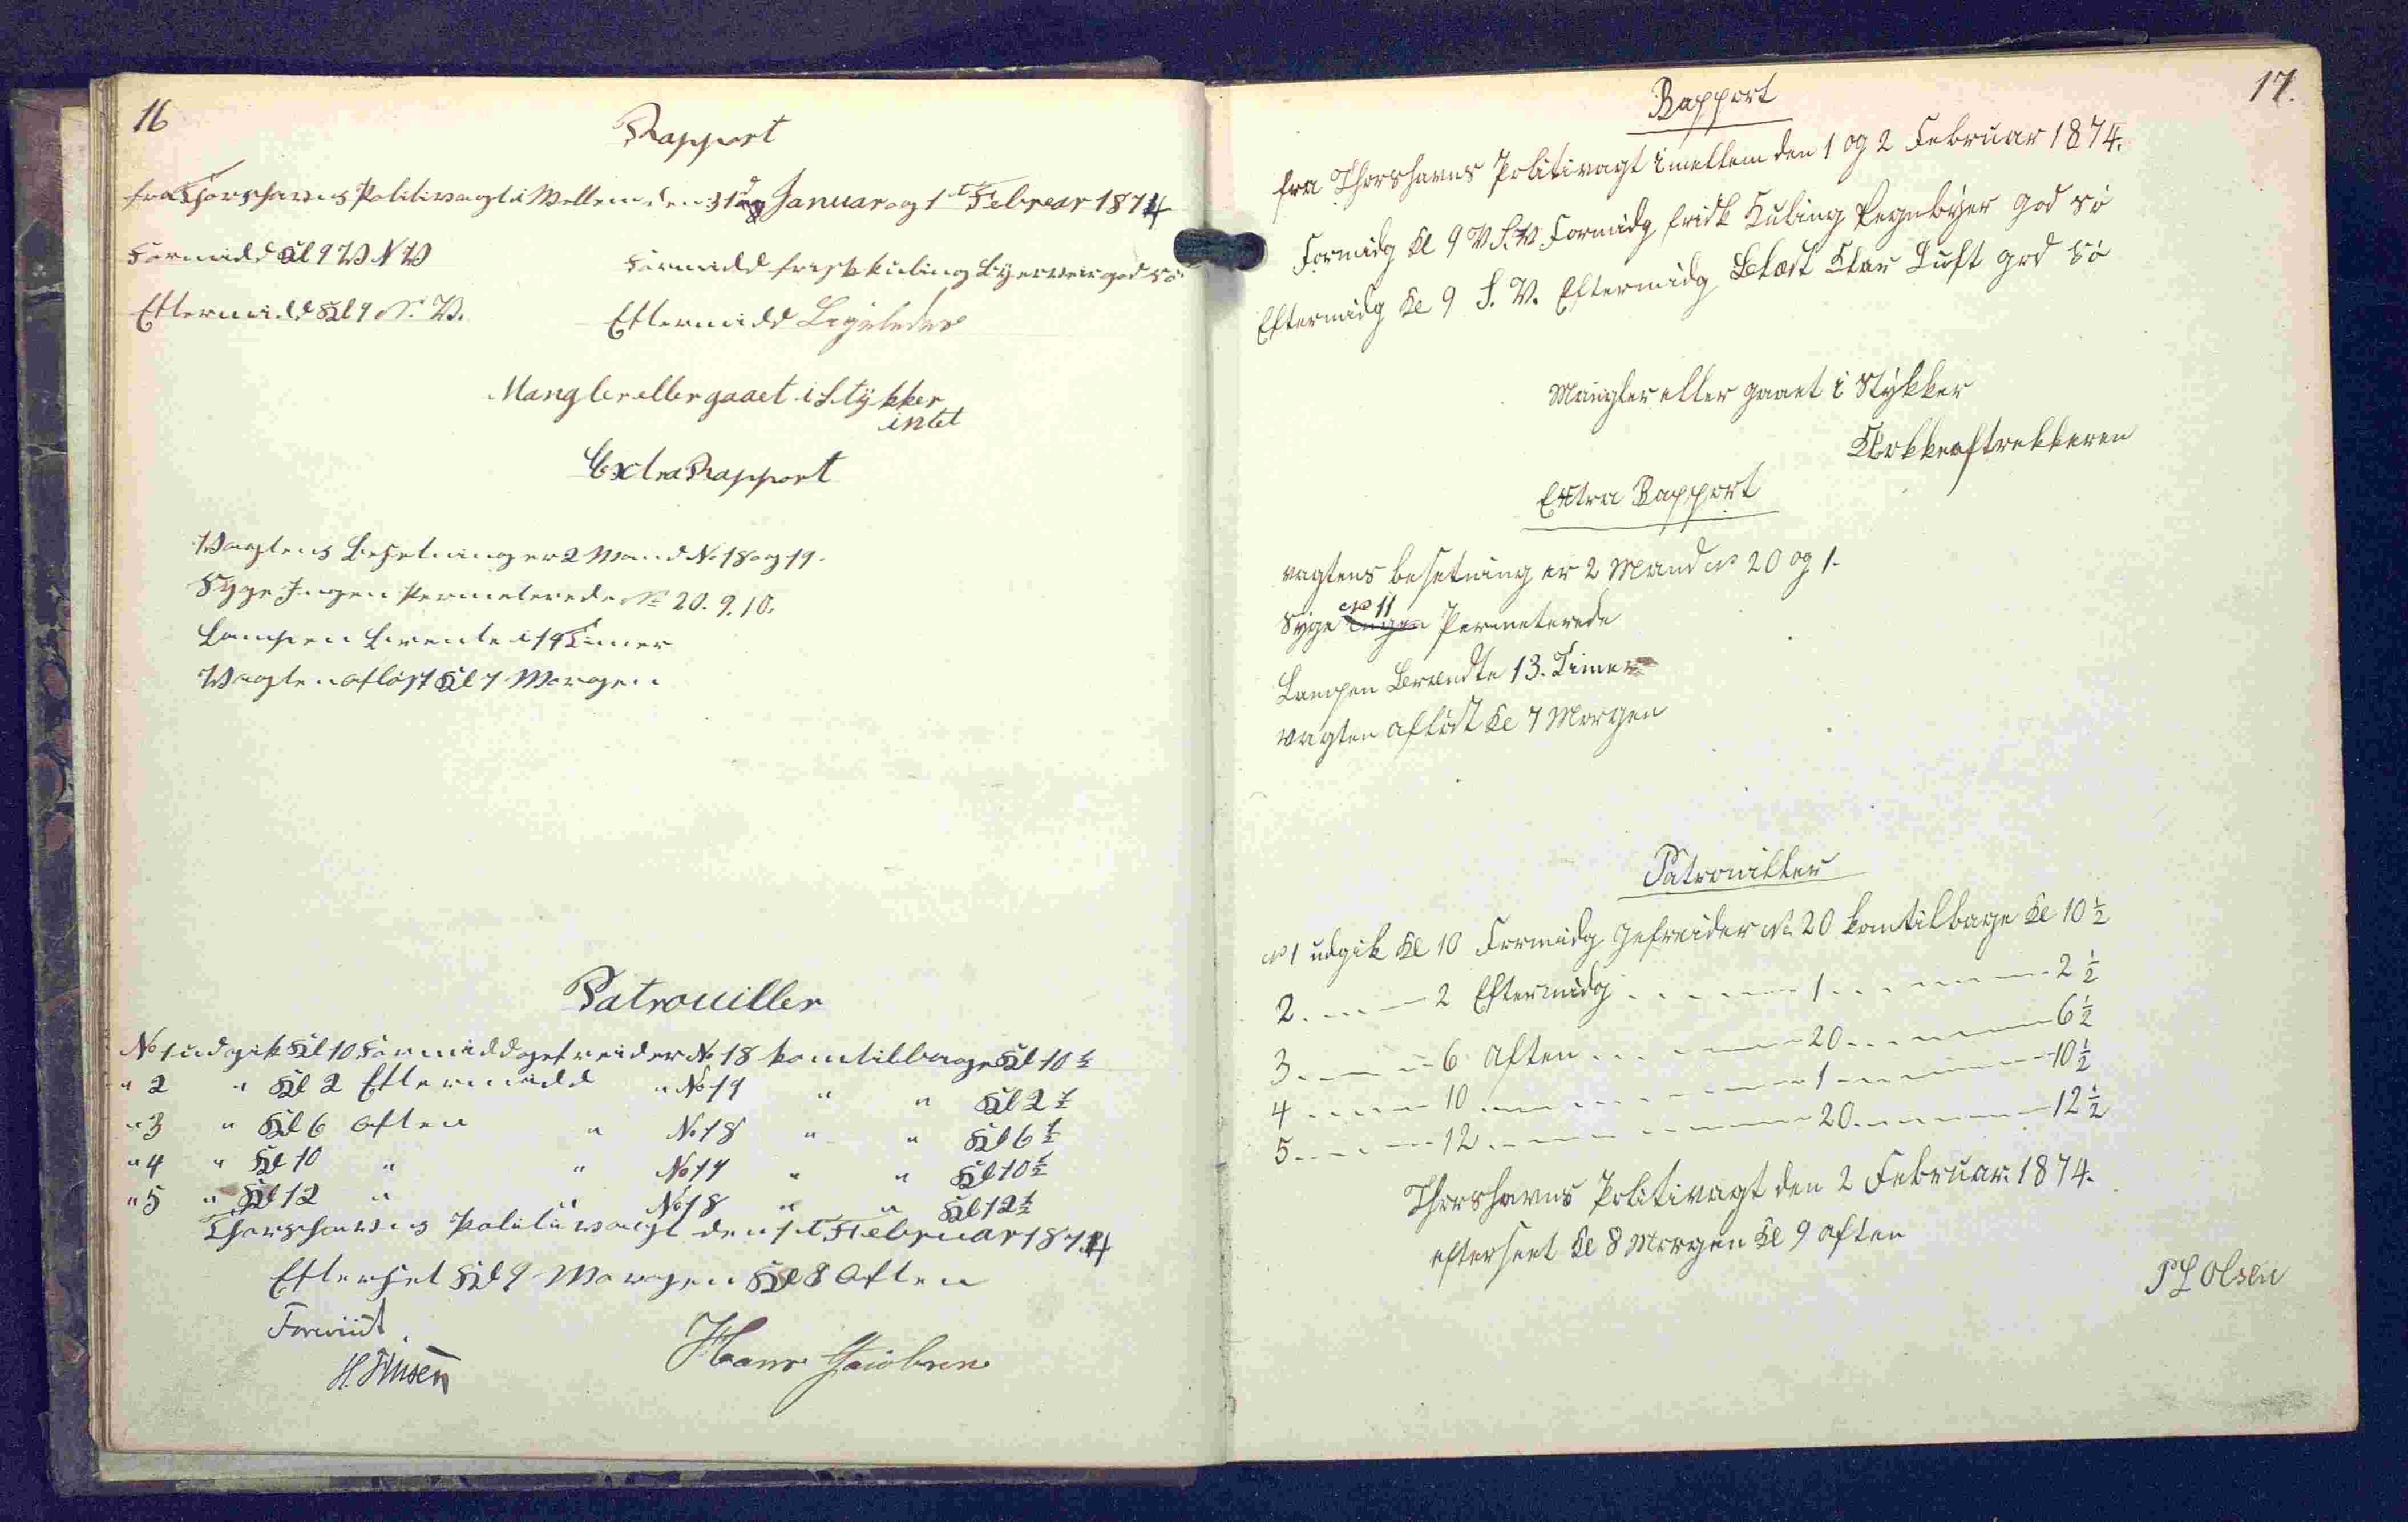 16
Rapport
fra Thorshavns Politivagt i Mellem den 31 og Januar og 1t Februar 1874
Formidd Kl 9 V N V Formidd frisk kuling Byerveir god sö
Eftermidd Kl 9 N. V. Eftermidd Ligeledes
Mangler eller gaaet i Stykker
intet
Extra Rapport
Vagtens Besetning er 2 Mand No 18 og 19.
Syge Ingen Permeterede No 20. 9. 10.
Lampen brente i 14 Timer
Vagten aflöst Kl 7 Morgen
Patrouiller
No 1 udgik Kl 10 Formidd gefreider No 18 kom tilbage Kl 10 ½
" 2 " Kl 2 Eftermidd " No 19 " " Kl 2 ½
" 3 " Kl 6 Aften " No 18 " " Kl 6 ½
" 4 " Kl 10 " " No 19 " " Kl 10 ½
" 5 " Kl 12 " " No 18 " " Kl 12 ½
Thorshavns Politivagt den 1t Februar 1874
Efterset Kl 9 Morgen Kl 8 Aften
Foreviist
H. Finsen Hans Jacobsen
17.
Rapport
fra Thorshavns Politivagt imellem den 1 og 2 Februar 1874.
Formidg Kl 9 V S. V Formidg frisk Kuling Regnbÿer god sö
Eftermidg Kl 9 S. V. Eftermidg Blæst Klar Luft god sö
Mangler eller gaaet i Stÿkker
Klokkeaftrekkeren
Extra Rapport
vagtens besetning er 2 Mand No 20 og 1.
No 11
Syge Ingen Permeterede
Lampen Brændte 13. Timer
vagten aflöst Kl 7 Morgen
Patrouiller
No 1 udgik Kl 10 Formidg gefreider No 20 kom tilbage Kl 10 ½
2. 2 Eftermidg 1 2 ½
3. 6 Aften 20 6 ½
4 10 1 10 ½
5. 12 20 12 ½
Thorshavns Politivagt den 2 Februar. 1874.
efterseet Kl 8 Morgen Kl 9 Aften
P L Olsen